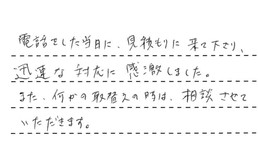 電話をした当日に、見積もりに来て下さり、
迅速な対応に感激しました。
また、何かの取替えの時は、相談させて
いただきます。